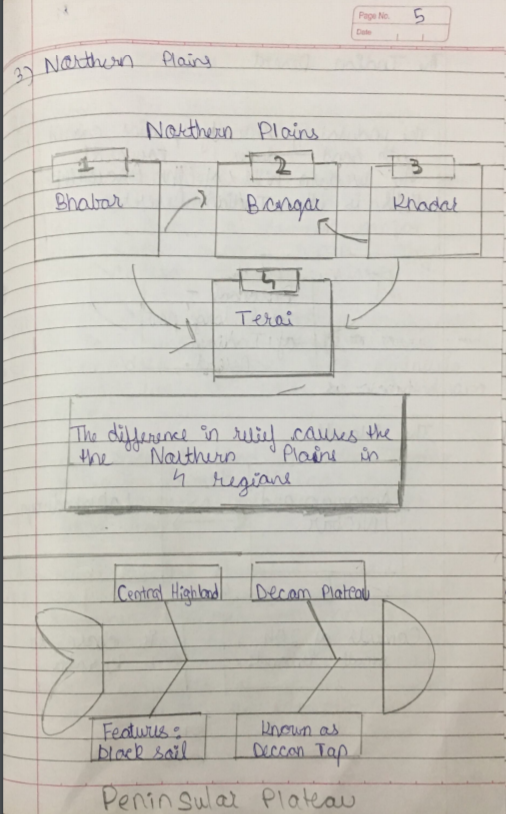 Page No. 5
Date
3) Northern Plains
Northern Plains
1
2
3
Bhabar
Bangar
Khadar
4
Terai
The difference in relief causes the
the Northern Plains in
4 regions
Central Highland
Deccan Plateau
Features:
black soil
Known as
Deccan Tap
Peninsular Plateau